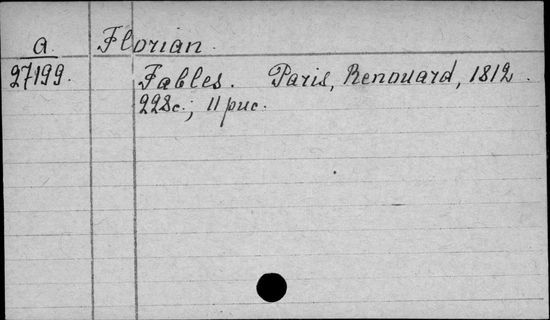 a. Florian.
27199. Fables. Paris, Renouard, 1812.
228с.; 11 рис.